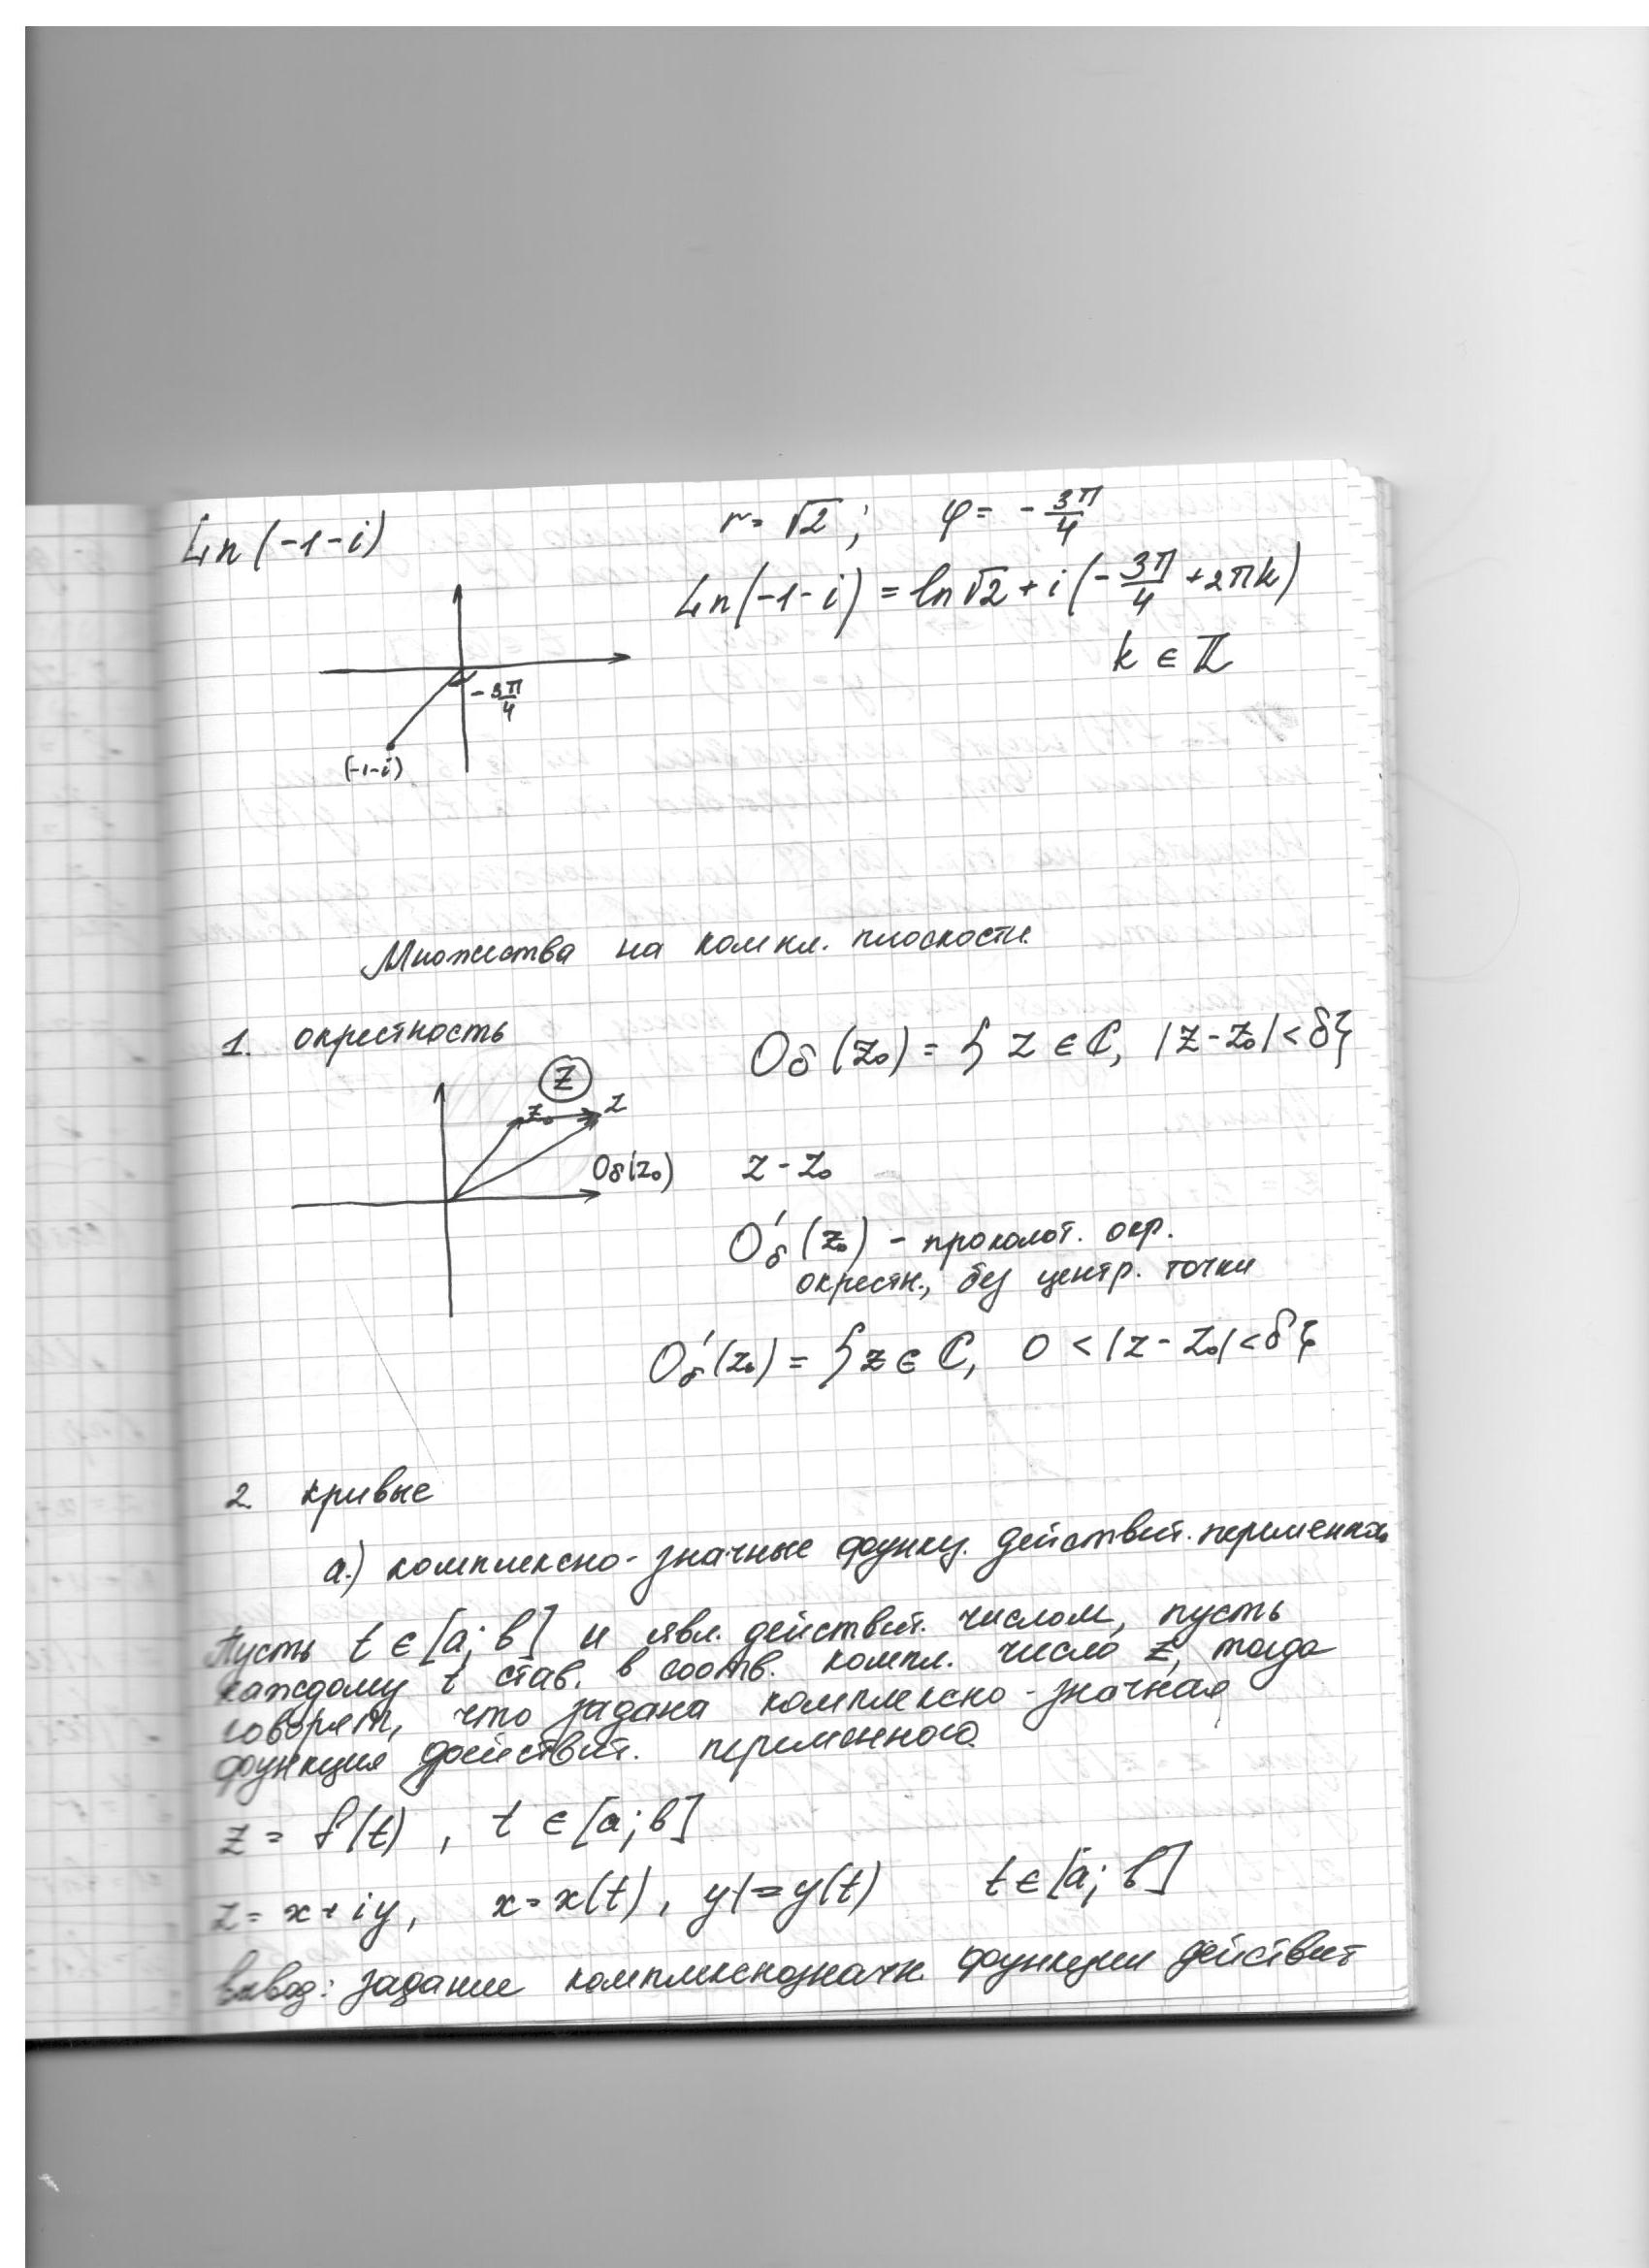 Ln (-1-i)
r = √2 ; φ = - 3π/4
Ln(-1-i) = ln√2 + i(-3π/4 + 2πk)
k ∈ ℤ
- 3π/4
(-1-i)
Множества на компл. плоскости.
1. окрестность
Oδ (z₀) = { z ∈ ℂ, |z - z₀| < δ}
Z
z₀ z
Oδ(z₀)
z - z₀
O'δ (z₀) - проколот. окр.
окрестн., без центр. точки
O'δ (z₀) = { z ∈ ℂ, 0 < |z - z₀| < δ}
2. кривые
а.) комплексно-значные функц. действит. переменных
Пусть t ∈ [a; b] и явл. действит. числом, пусть
каждому t став. в соотв. компл. число z, тогда
говорят, что задана комплексно-значная
функция действит. переменного.
z = f(t) , t ∈ [a; b]
z = x + iy, x = x(t), y = y(t) t ∈ [a; b]
Вывод: задание комплекснозначн. функции действит